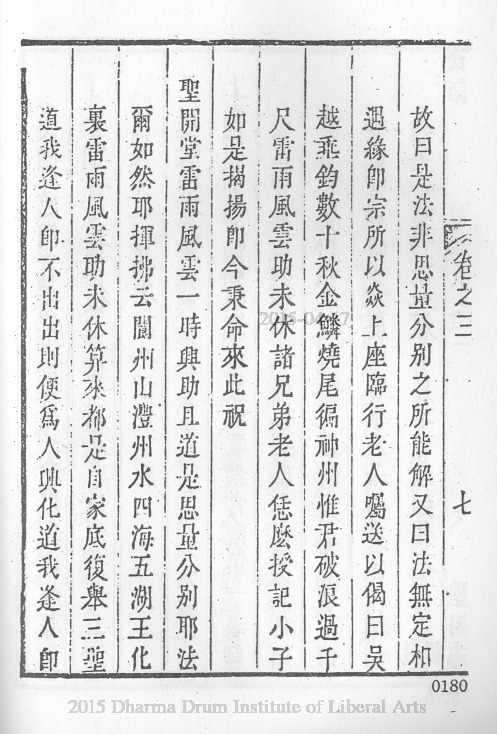 卷之三
七
故曰是法非思量分別之所能解又曰法無定相
遇緣即宗所以焱上座臨行老人囑送以偈曰吳
越乖鈞數十秋金鱗燒尾徧神州惟君破浪過千
尺雷雨風雲助未休諸兄弟老人恁麼授記小子
如是揭揚即今秉命來此祝
聖開堂雷雨風雲一時興助且道是思量分別耶法
爾如然耶揮拂云閬州山澧州水四海五湖王化
裏雷雨風雲助未休算來都是自家底復舉三聖
道我逢人即不出出則便為人興化道我逢人即
0180
2015 Dharma Drum Institute of Liberal Arts